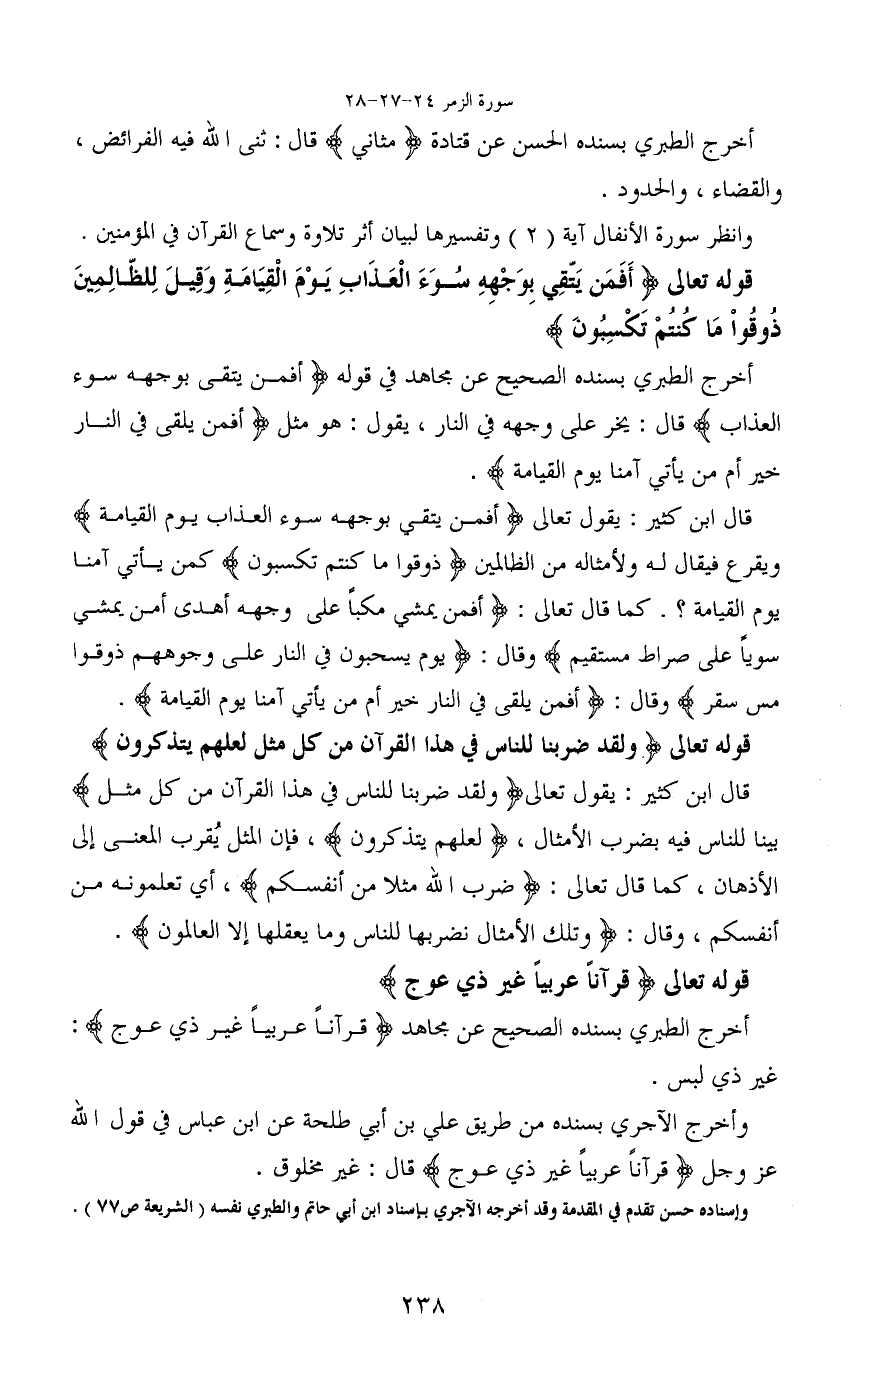 سورة الزمر ٢٤-٢٧-٢٨
أخرج الطبري بسنده الحسن عن قتادة ﴿ مثاني ﴾ قال : ثنى الله فيه الفرائض ،
والقضاء ، والحدود .
وانظر سورة الأنفال آية ( ٢ ) وتفسيرها لبيان أثر تلاوة وسماع القرآن في المؤمنين .
قوله تعالى ﴿ أَفَمَن يَتَّقِي بِوَجْهِهِ سُوءَ الْعَذَابِ يَوْمَ الْقِيَامَةِ وَقِيلَ لِلظَّالِمِينَ
ذُوقُواْ مَا كُنتُمْ تَكْسِبُونَ ﴾
أخرج الطبري بسنده الصحيح عن مجاهد في قوله ﴿ أفمن يتقى بوجهه سوء
العذاب ﴾ قال : يخر على وجهه في النار ، يقول : هو مثل ﴿ أفمن يلقى في النار
خير أم من يأتي آمنا يوم القيامة ﴾ .
قال ابن كثير : يقول تعالى ﴿ أفمن يتقي بوجهه سوء العذاب يوم القيامة ﴾
ويقرع فيقال له ولأمثاله من الظالمين ﴿ ذوقوا ما كنتم تكسبون ﴾ كمن يأتي آمنا
يوم القيامة ؟ . كما قال تعالى : ﴿ أفمن يمشي مكباً على وجهه أهدى أمن يمشي
سوياً على صراط مستقيم ﴾ وقال : ﴿ يوم يسحبون في النار على وجوههم ذوقوا
مس سقر ﴾ وقال : ﴿ أفمن يلقى في النار خير أم من يأتي آمنا يوم القيامة ﴾ .
قوله تعالى ﴿ ولقد ضربنا للناس في هذا القرآن من كل مثل لعلهم يتذكرون ﴾
قال ابن كثير : يقول تعالى﴿ ولقد ضربنا للناس في هذا القرآن من كل مثل ﴾
بينا للناس فيه بضرب الأمثال ، ﴿ لعلهم يتذكرون ﴾ ، فإن المثل يُقرب المعنى إلى
الأذهان ، كما قال تعالى : ﴿ ضرب الله مثلا من أنفسكم ﴾ ، أي تعلمونه من
أنفسكم ، وقال : ﴿ وتلك الأمثال نضربها للناس وما يعقلها إلا العالمون ﴾ .
قوله تعالى ﴿ قرآناً عربياً غير ذي عوج ﴾
أخرج الطبري بسنده الصحيح عن مجاهد ﴿ قرآناً عربياً غير ذي عوج ﴾ :
غير ذي لبس .
وأخرج الآجري بسنده من طريق علي بن أبي طلحة عن ابن عباس في قول الله
عز وجل ﴿ قرآناً عربياً غير ذي عوج ﴾ قال : غير مخلوق .
وإسناده حسن تقدم في المقدمة وقد أخرجه الآجري بإسناد ابن أبي حاتم والطبري نفسه ( الشريعة ص٧٧ ) .
٢٣٨